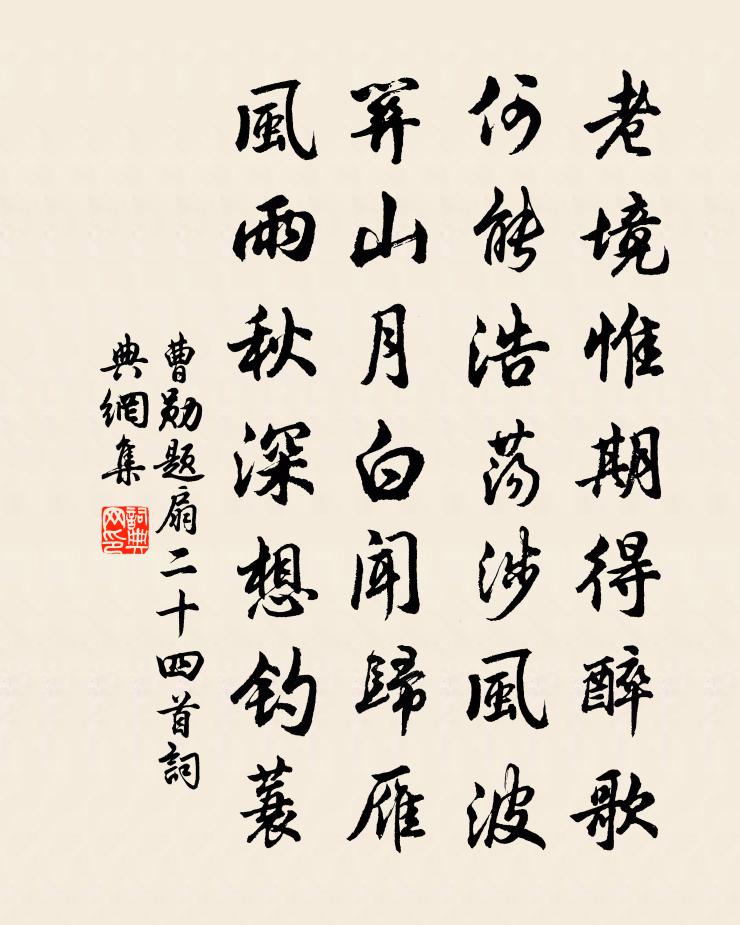 老境惟期得醉歌
何能浩蕩涉風波
關山月白聞歸雁
風雨秋深想釣蓑
曹勛題扇二十四首詞
典網集
詞典
网印